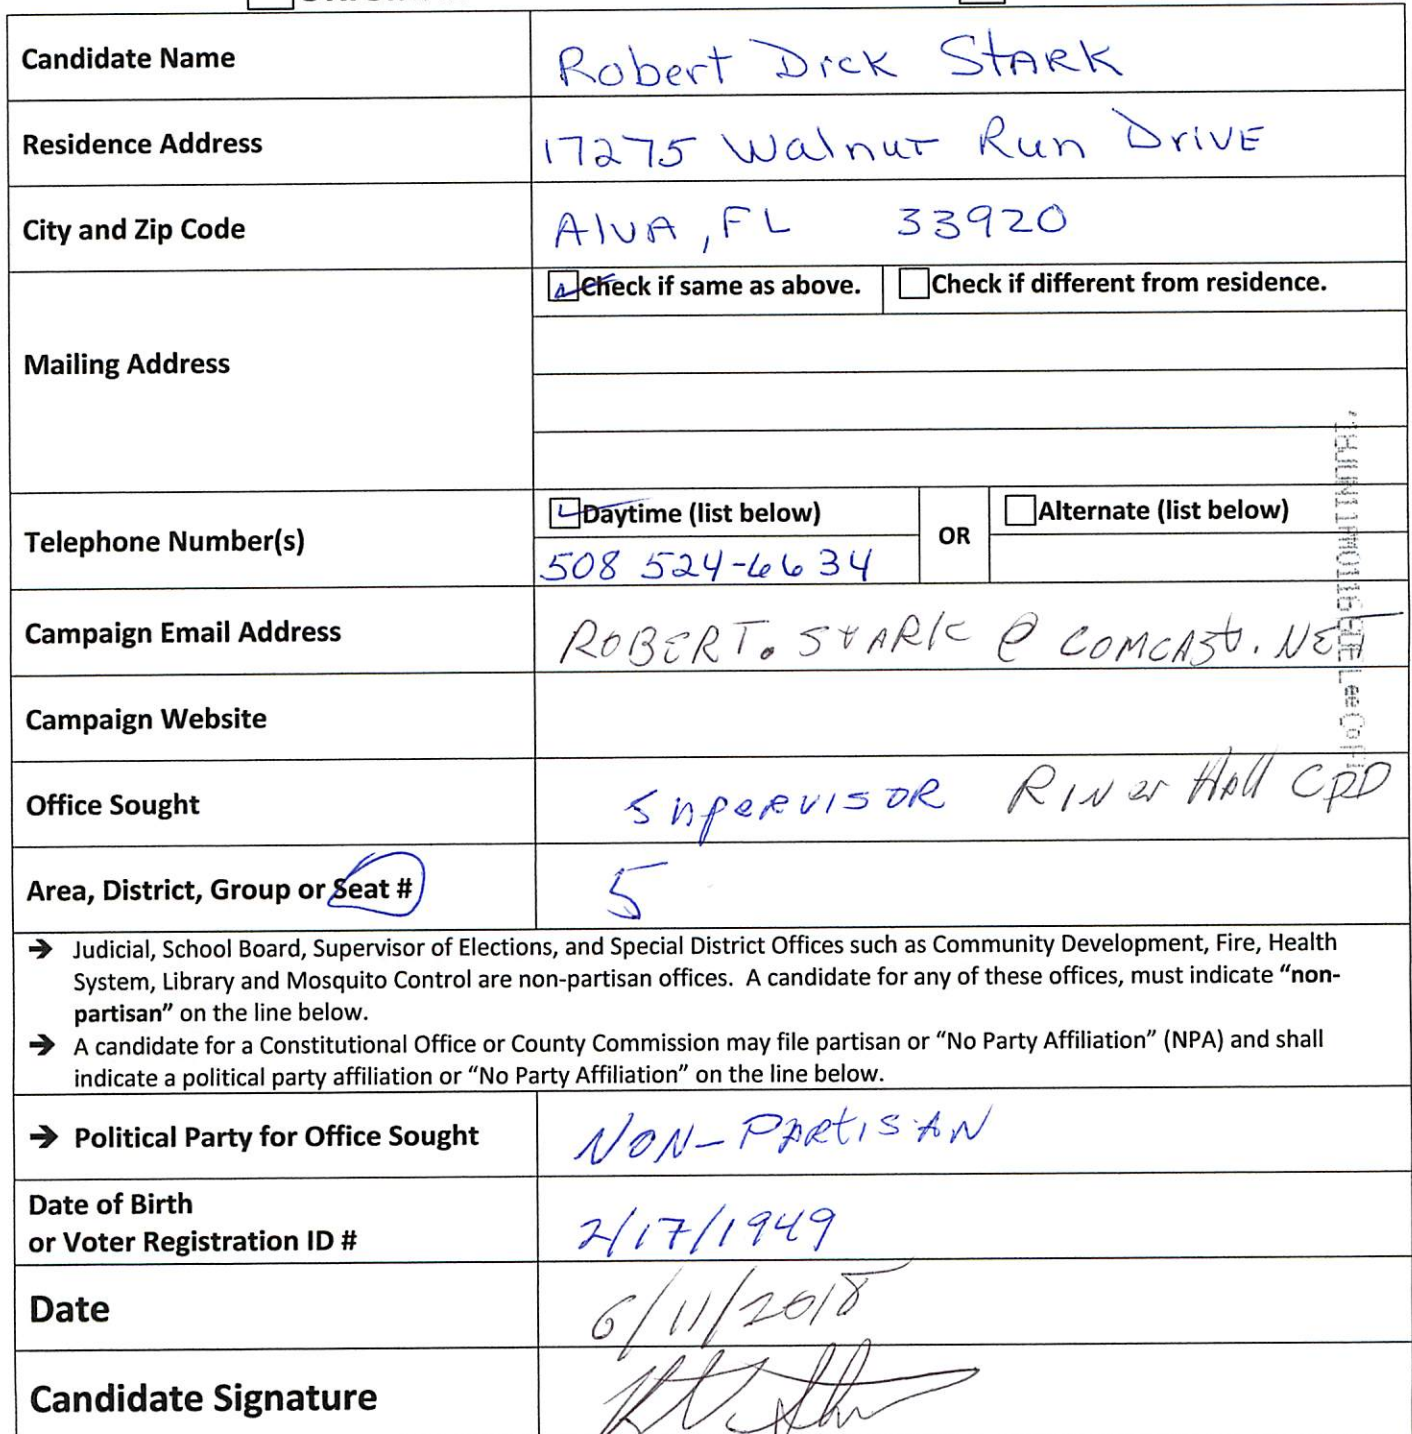 Candidate Name Robert Dick Stark
Residence Address 17275 Walnut Run Drive
City and Zip Code Alva, FL 33920
Check if same as above. Check if different from residence.
Mailing Address
Daytime (list below) OR Alternate (list below)
Telephone Number(s) 508 524-6634
Campaign Email Address ROBERT.STARK@COMCAST.NET
Campaign Website
Office Sought Supervisor River Hall CDD
Area, District, Group or Seat # 5
→ Judicial, School Board, Supervisor of Elections, and Special District Offices such as Community Development, Fire, Health
System, Library and Mosquito Control are non-partisan offices. A candidate for any of these offices, must indicate “non-
partisan” on the line below.
→ A candidate for a Constitutional Office or County Commission may file partisan or “No Party Affiliation” (NPA) and shall
indicate a political party affiliation or “No Party Affiliation” on the line below.
→ Political Party for Office Sought NON-PARTISAN
Date of Birth
or Voter Registration ID # 2/17/1949
Date 6/11/2018
Candidate Signature